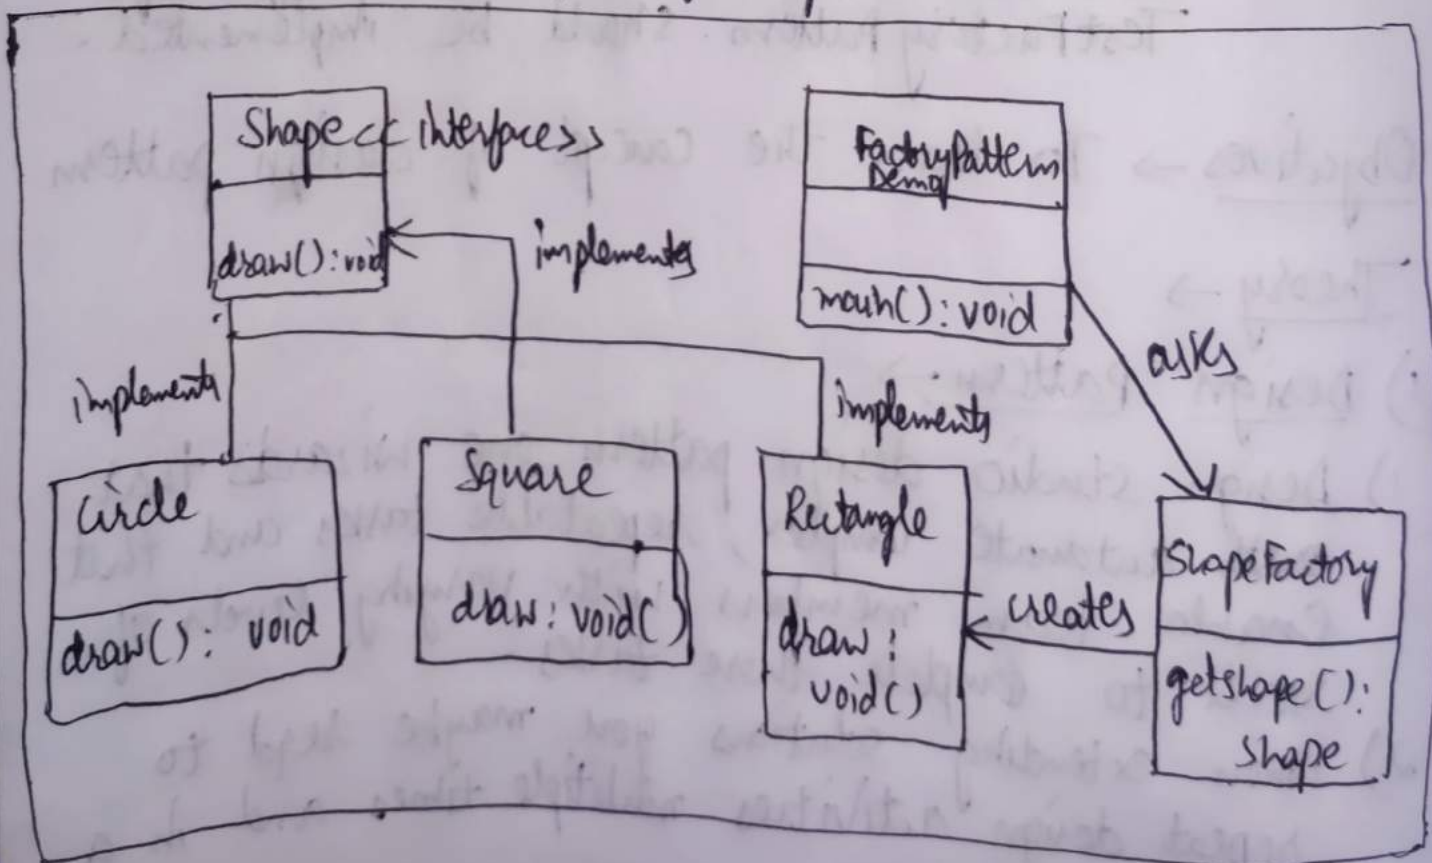 Shape << interface>>
draw() : void
implements
FactoryPattern
Demo
main() : void
asks
implements
implements
Circle
draw() : void
Square
draw : void()
Rectangle
draw :
void()
creates
ShapeFactory
getshape() :
shape